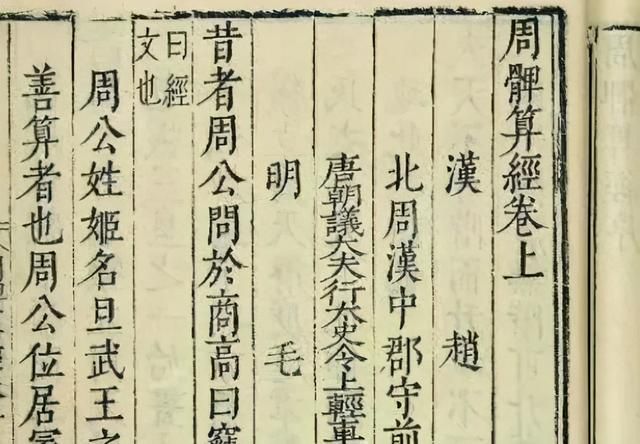 周髀算經卷上
漢 趙
北周漢中郡守前
唐朝議大夫行太史令上輕車
明 毛
昔者周公問於商高曰竊
曰經
文也
周公姓姬名旦武王之
善算者也周公位居冢